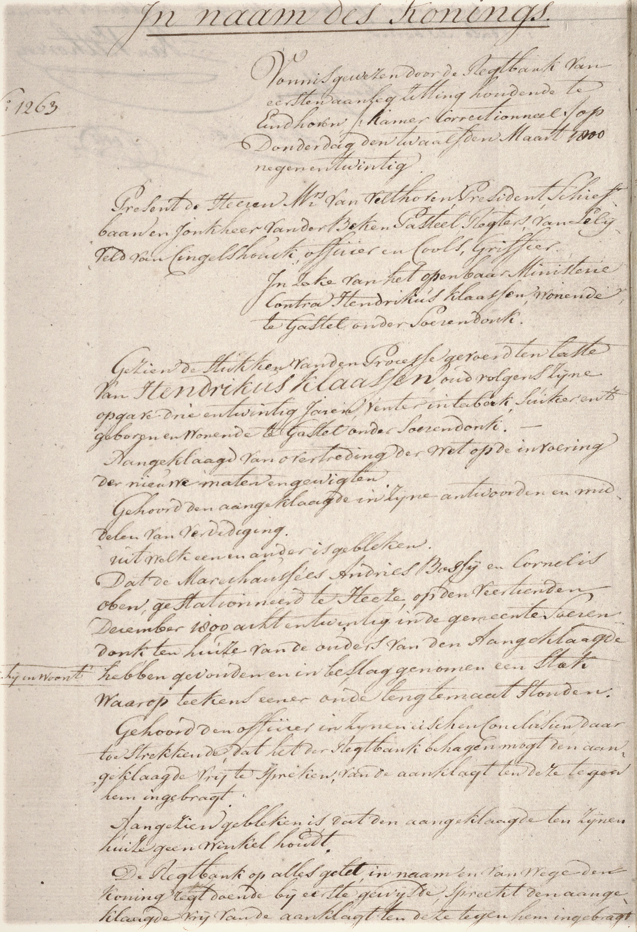 In naam des Konings.
Vonnis gewezen door de Regtbank van
eersten aanleg zitting houdende te
Eindhoven (Kamer Correctionneel) op
1263
Donderdag den twaalfden Maart 1800
negenentwintig
Present de Heeren Mrs van Velthoven President Schief
baan en Jonkheer vander Beken Pasteel Regters, van Lely
veld van Cingelshouck, officier en Cools, Griffier.
In zake van het openbaar Ministerie
Contra Hendrikus Klaassen, wonende
te Gastel onder Soerendonk.
Gezien de stukken van den Processe gevoerd ten laste
van Hendrikus Klaassen oud volgens zyne
opgave drie en twintig Jaren, Venter in tabak, Suiker enz
geboren en wonende te Gastel onder Soerendonk. —
Aangeklaagd van overtreding der Wet op de invoering
der nieuwe maten en gewigten.
Gehoord den aangeklaagde in zyne antwoorden en mid-
delen van verdediging.
uit welk een en ander is gebleken.
Dat de Marechaussées Andries Bossy en Cornelis
oben, gestationneerd te Heeze, op den veertienden
December 1800 acht en twintig in de gemeente Soeren-
donk ten huize van de ouders van den Aangeklaagde
hy en woont
hebben gevonden en in beslag genomen een Stok
waarop teekens eener oude lengtemaat stonden.
Gehoord den officier in zynen eisch en Conclusien daar
toe strekkende, dat het der Regtbank behagen mogt den aan-
geklaagde vry te spreken, van de aanklagt ten deze tegen
hem ingebragt.
Aangezien gebleken is dat den aangeklaagde ten zynen
huize geen winkel houdt.
De Regtbank op alles gelet, in naam en van wege den
Koning regt doende by eerste gewysde Spreekt den aange-
klaagde vry van de aanklagt ten deze tegen hem ingebragt